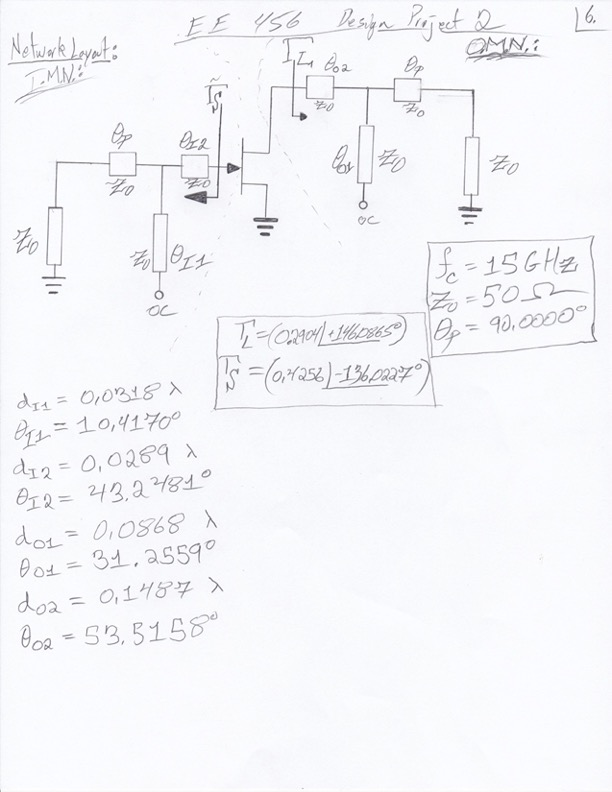 EE 456 Design Project 2
6.
Network Layout:
I.M.N.:
O.M.N.:
Γ_L
θ_O2
Z_0
θ_P
Z_0
Γ_S
θ_P
Z_0
θ_I2
Z_0
θ_O1
Z_0
Z_0
OC
Z_0
Z_0
θ_I1
OC
f_c = 15 GHz
Z_0 = 50 Ω
θ_P = 90.0000°
Γ_L = (0.2904∠+146.0865°)
Γ_S = (0.4256∠-136.0227°)
d_I1 = 0.0318 λ
θ_I1 = 10.4170°
d_I2 = 0.0289 λ
θ_I2 = 43.2481°
d_O1 = 0.0868 λ
θ_O1 = 31.2559°
d_O2 = 0.1487 λ
θ_O2 = 53.5158°